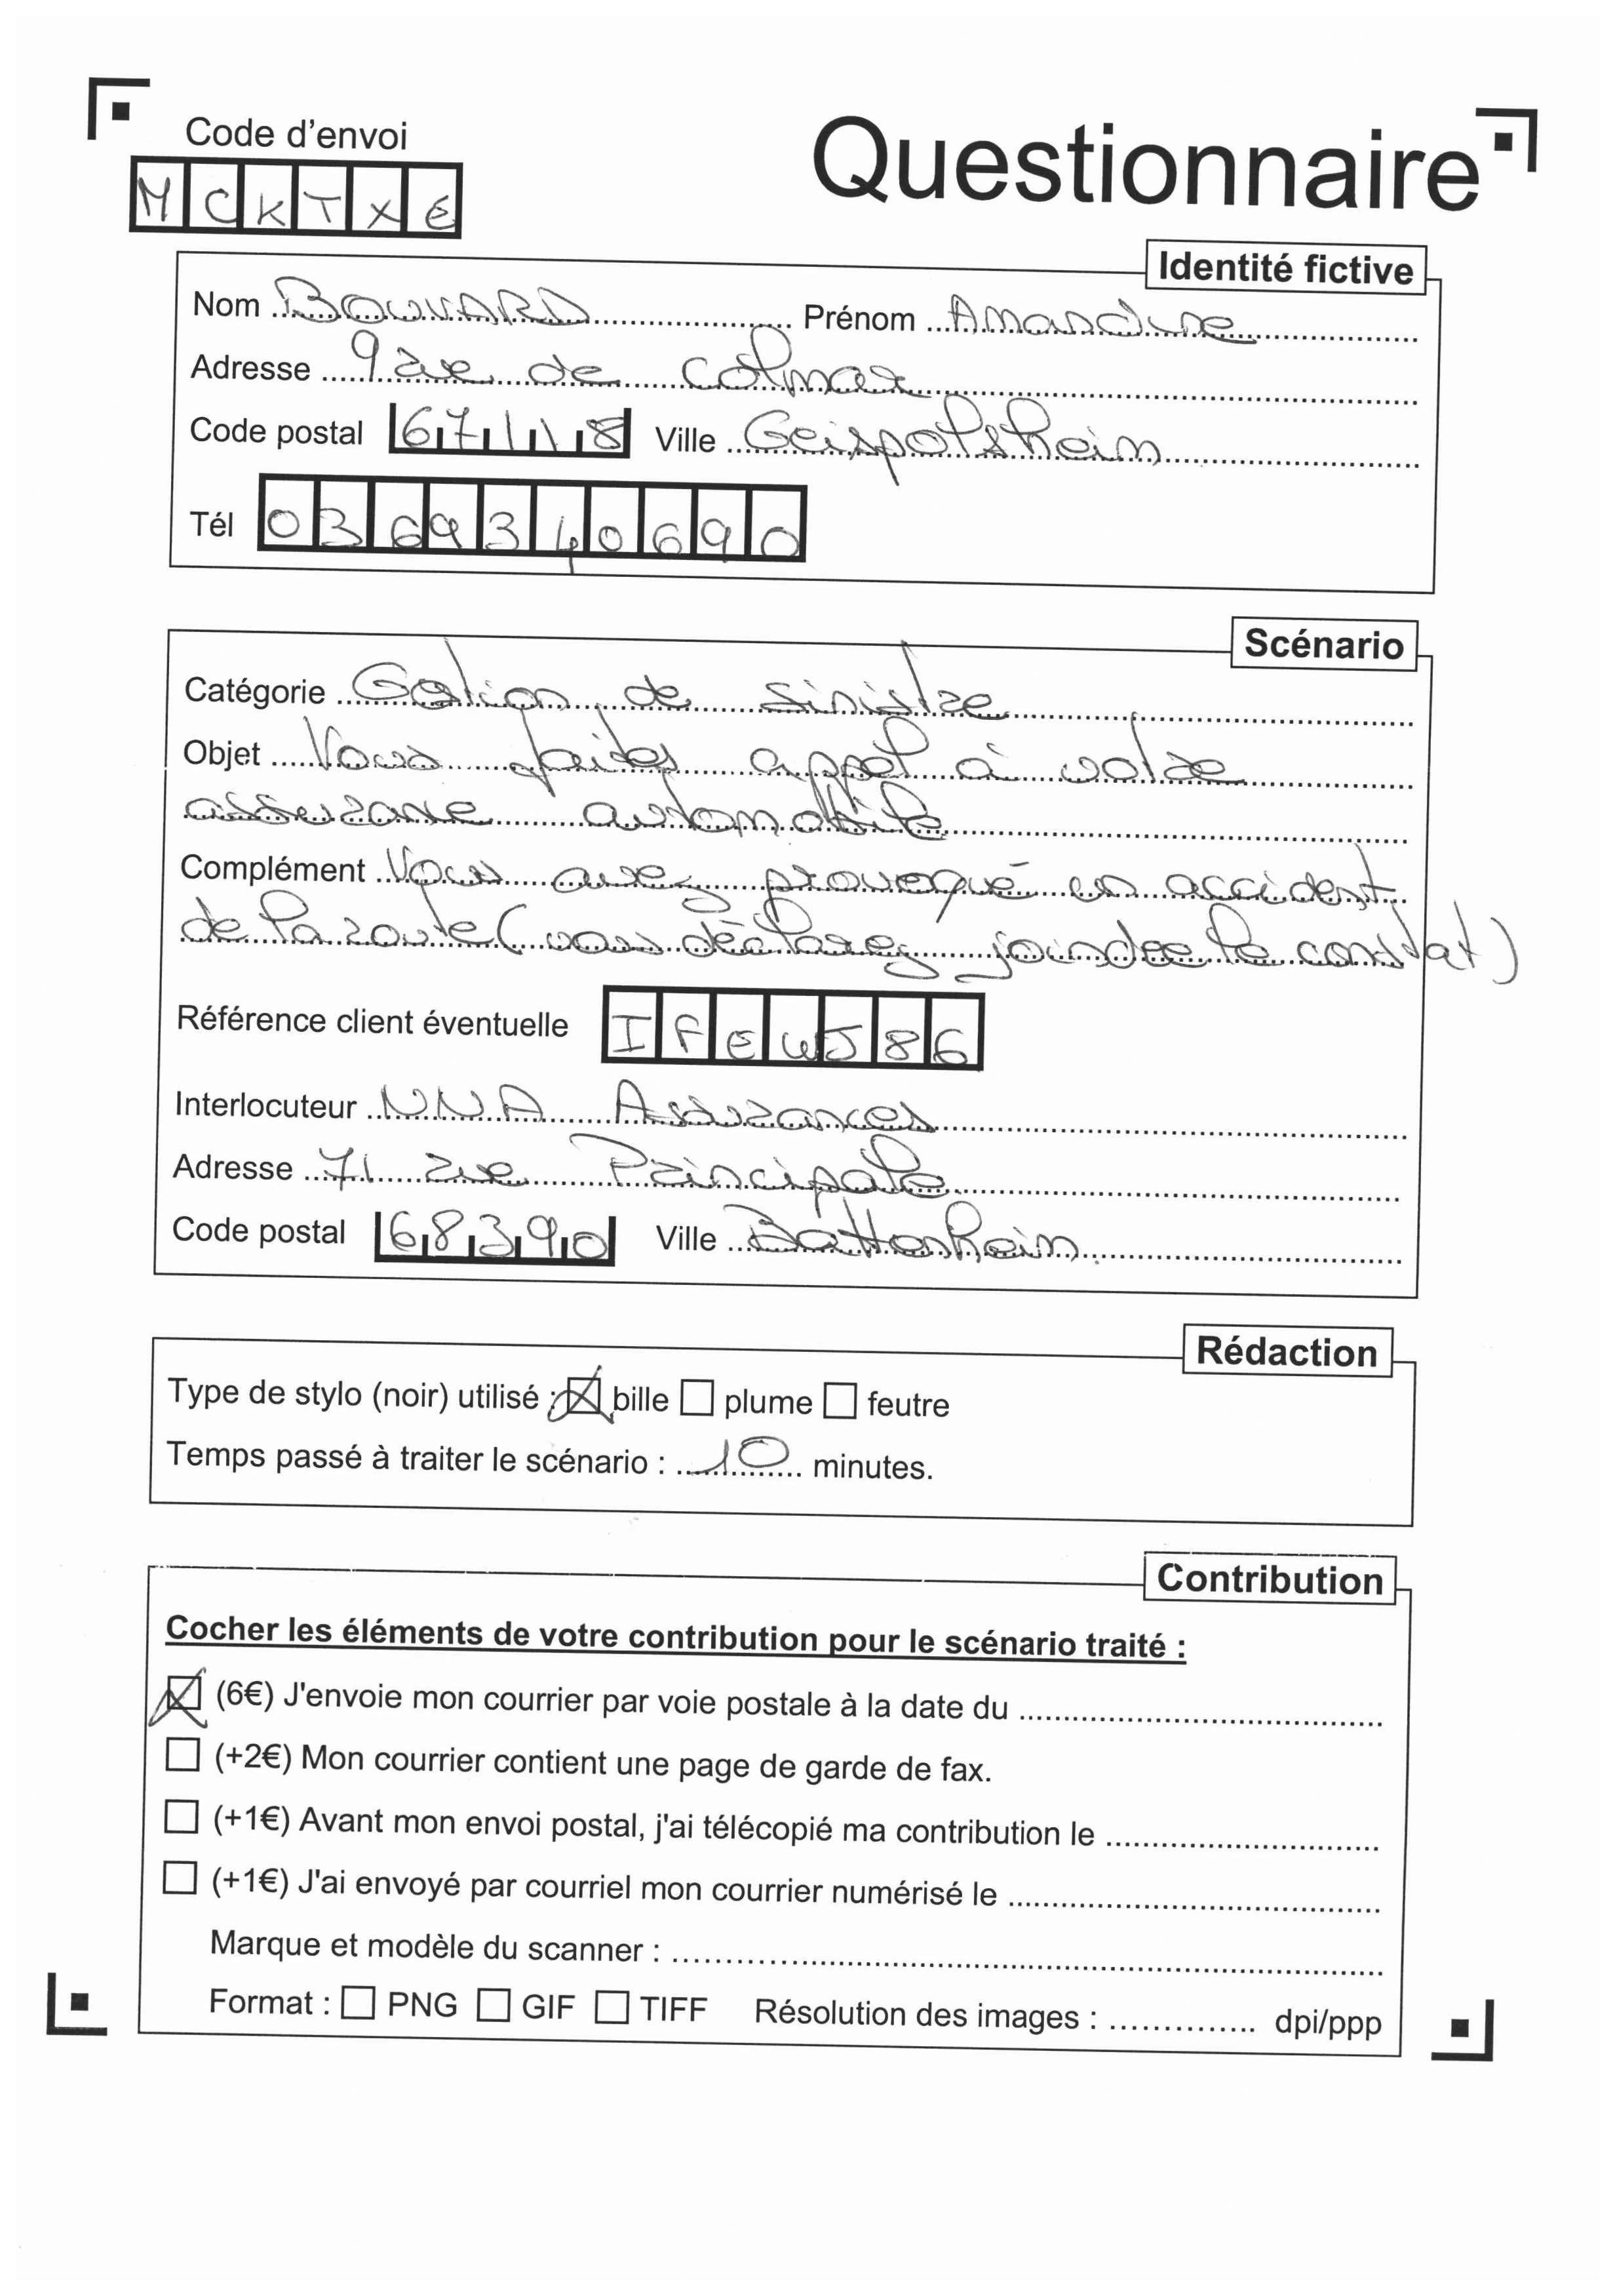 Code d'envoi
MCKTXE
Questionnaire
Identité fictive
Nom BOUVARD Prénom Amandine
Adresse 9 rue de Colmar
Code postal 67118 Ville Geispolsheim
Tél 0369340690
Scénario
Catégorie Gestion de sinistre
Objet Vous faites appel à votre
assurance automobile
Complément Vous avez provoqué un accident
de la route (vous déclarez joindre le constat)
Référence client éventuelle IFEWJ86
Interlocuteur NNA Assurances
Adresse 71 rue Principale
Code postal 68390 Ville Battenheim
Rédaction
Type de stylo (noir) utilisé : bille plume feutre
Temps passé à traiter le scénario : 10 minutes.
Contribution
Cocher les éléments de votre contribution pour le scénario traité :
(6€) J'envoie mon courrier par voie postale à la date du
(+2€) Mon courrier contient une page de garde de fax.
(+1€) Avant mon envoi postal, j'ai télécopié ma contribution le
(+1€) J'ai envoyé par courriel mon courrier numérisé le
Marque et modèle du scanner :
Format : PNG GIF TIFF Résolution des images : dpi/ppp